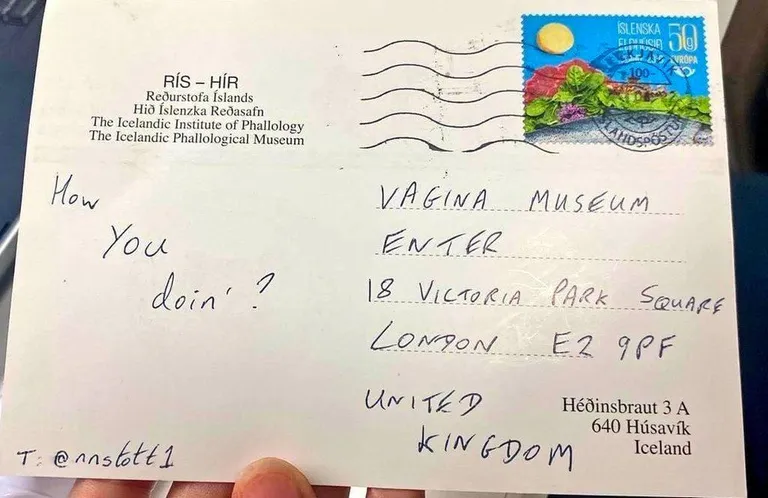 RÍS – HÍR
Reðurstofa Íslands
Hið Íslenzka Reðasafn
The Icelandic Institute of Phallology
The Icelandic Phallological Museum
ÍSLENSKA 50g
EVRÓPA
-100-
ÍSLANDSPÓSTUR
How
You
doin'?
VAGINA MUSEUM
ENTER
18 VICTORIA PARK SQUARE
LONDON E2 9PF
UNITED
KINGDOM
Héðinsbraut 3 A
640 Húsavík
Iceland
T: @nnstott1